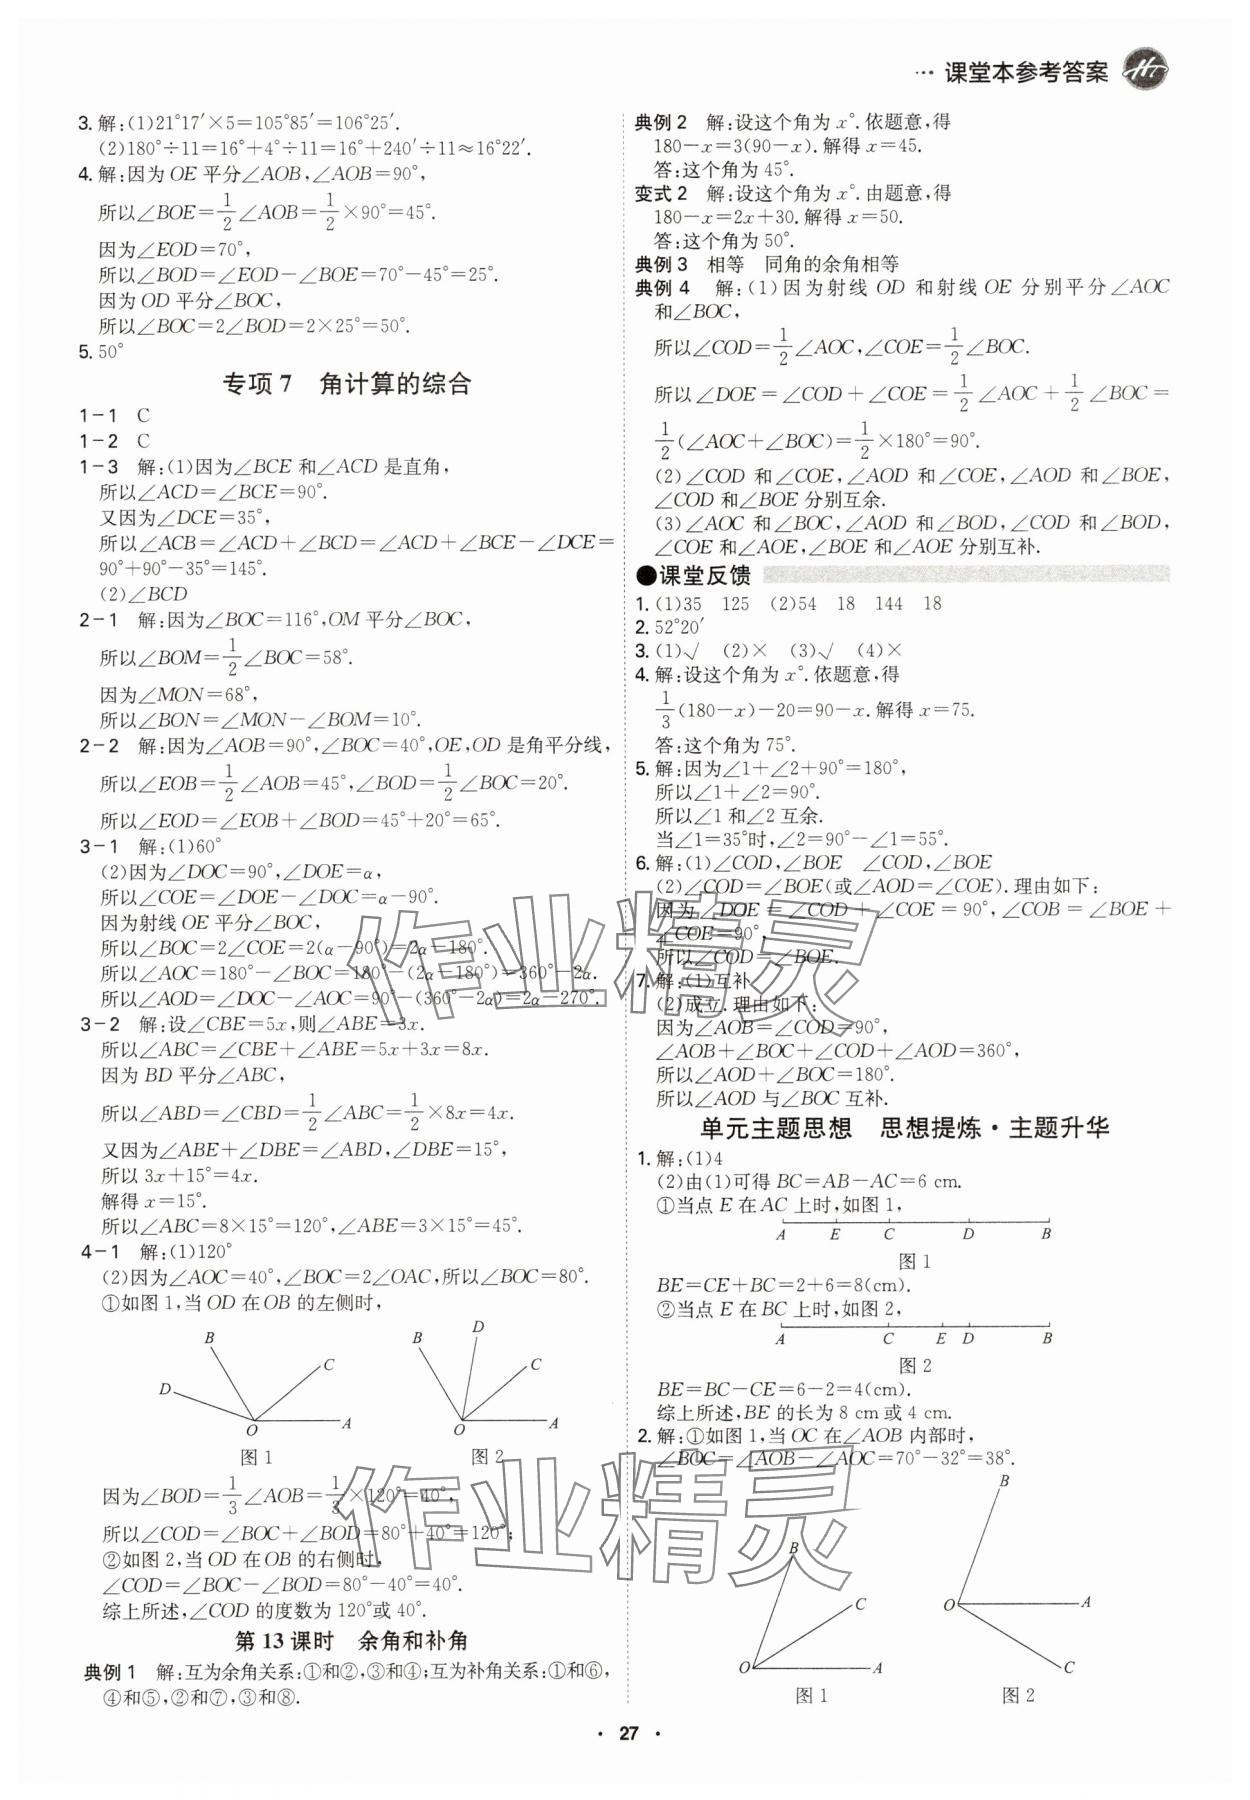 ··· 课堂本参考答案
3. 解:(1)21°17′×5=105°85′=106°25′.
(2)180°÷11=16°+4°÷11=16°+240′÷11≈16°22′.
4. 解:因为 OE 平分∠AOB,∠AOB=90°,
所以∠BOE=1/2∠AOB=1/2×90°=45°.
因为∠EOD=70°,
所以∠BOD=∠EOD-∠BOE=70°-45°=25°.
因为 OD 平分∠BOC,
所以∠BOC=2∠BOD=2×25°=50°.
5. 50°
专项 7 角计算的综合
1-1 C
1-2 C
1-3 解:(1)因为∠BCE 和∠ACD 是直角,
所以∠ACD=∠BCE=90°.
又因为∠DCE=35°,
所以∠ACB=∠ACD+∠BCD=∠ACD+∠BCE-∠DCE=
90°+90°-35°=145°.
(2)∠BCD
2-1 解:因为∠BOC=116°,OM 平分∠BOC,
所以∠BOM=1/2∠BOC=58°.
因为∠MON=68°,
所以∠BON=∠MON-∠BOM=10°.
2-2 解:因为∠AOB=90°,∠BOC=40°,OE,OD 是角平分线,
所以∠EOB=1/2∠AOB=45°,∠BOD=1/2∠BOC=20°.
所以∠EOD=∠EOB+∠BOD=45°+20°=65°.
3-1 解:(1)60°
(2)因为∠DOC=90°,∠DOE=α,
所以∠COE=∠DOE-∠DOC=α-90°.
因为射线 OE 平分∠BOC,
所以∠BOC=2∠COE=2(α-90°)=2α-180°.
所以∠AOC=180°-∠BOC=180°-(2α-180°)=360°-2α.
所以∠AOD=∠DOC-∠AOC=90°-(360°-2α)=2α-270°.
3-2 解:设∠CBE=5x,则∠ABE=3x.
所以∠ABC=∠CBE+∠ABE=5x+3x=8x.
因为 BD 平分∠ABC,
所以∠ABD=∠CBD=1/2∠ABC=1/2×8x=4x.
又因为∠ABE+∠DBE=∠ABD,∠DBE=15°,
所以 3x+15°=4x.
解得 x=15°.
所以∠ABC=8×15°=120°,∠ABE=3×15°=45°.
4-1 解:(1)120°
(2)因为∠AOC=40°,∠BOC=2∠OAC,所以∠BOC=80°.
①如图 1,当 OD 在 OB 的左侧时,
B C D O A
图 1
B D C O A
图 2
因为∠BOD=1/3∠AOB=1/3×120°=40°,
所以∠COD=∠BOC+∠BOD=80°+40°=120°;
②如图 2,当 OD 在 OB 的右侧时,
∠COD=∠BOC-∠BOD=80°-40°=40°.
综上所述,∠COD 的度数为 120°或 40°.
第 13 课时 余角和补角
典例 1 解:互为余角关系:①和②,③和④;互为补角关系:①和⑥,
④和⑤,②和⑦,③和⑧.
典例 2 解:设这个角为 x°.依题意,得
180-x=3(90-x).解得 x=45.
答:这个角为 45°.
变式 2 解:设这个角为 x°.由题意,得
180-x=2x+30.解得 x=50.
答:这个角为 50°.
典例 3 相等 同角的余角相等
典例 4 解:(1)因为射线 OD 和射线 OE 分别平分∠AOC
和∠BOC,
所以∠COD=1/2∠AOC,∠COE=1/2∠BOC.
所以∠DOE=∠COD+∠COE=1/2∠AOC+1/2∠BOC=
1/2(∠AOC+∠BOC)=1/2×180°=90°.
(2)∠COD 和∠COE,∠AOD 和∠COE,∠AOD 和∠BOE,
∠COD 和∠BOE 分别互余.
(3)∠AOC 和∠BOC,∠AOD 和∠BOD,∠COD 和∠BOD,
∠COE 和∠AOE,∠BOE 和∠AOE 分别互补.
●课堂反馈
1. (1)35 125 (2)54 18 144 18
2. 52°20′
3. (1)√ (2)× (3)√ (4)×
4. 解:设这个角为 x°.依题意,得
1/3(180-x)-20=90-x.解得 x=75.
答:这个角为 75°.
5. 解:因为∠1+∠2+90°=180°,
所以∠1+∠2=90°.
所以∠1 和∠2 互余.
当∠1=35°时,∠2=90°-∠1=55°.
6. 解:(1)∠COD,∠BOE ∠COD,∠BOE
(2)∠COD=∠BOE(或∠AOD=∠COE).理由如下:
因为∠DOE=∠COD+∠COE=90°,∠COB=∠BOE+
∠COE=90°,
所以∠COD=∠BOE.
7. 解:(1)互补
(2)成立.理由如下:
因为∠AOB=∠COD=90°,
∠AOB+∠BOC+∠COD+∠AOD=360°,
所以∠AOD+∠BOC=180°.
所以∠AOD 与∠BOC 互补.
单元主题思想 思想提炼·主题升华
1. 解:(1)4
(2)由(1)可得 BC=AB-AC=6 cm.
①当点 E 在 AC 上时,如图 1,
A E C D B
图 1
BE=CE+BC=2+6=8(cm).
②当点 E 在 BC 上时,如图 2,
A C E D B
图 2
BE=BC-CE=6-2=4(cm).
综上所述,BE 的长为 8 cm 或 4 cm.
2. 解:①如图 1,当 OC 在∠AOB 内部时,
∠BOC=∠AOB-∠AOC=70°-32°=38°.
B C O A
图 1
B O A C
图 2
作业精灵
作业精灵
· 27 ·